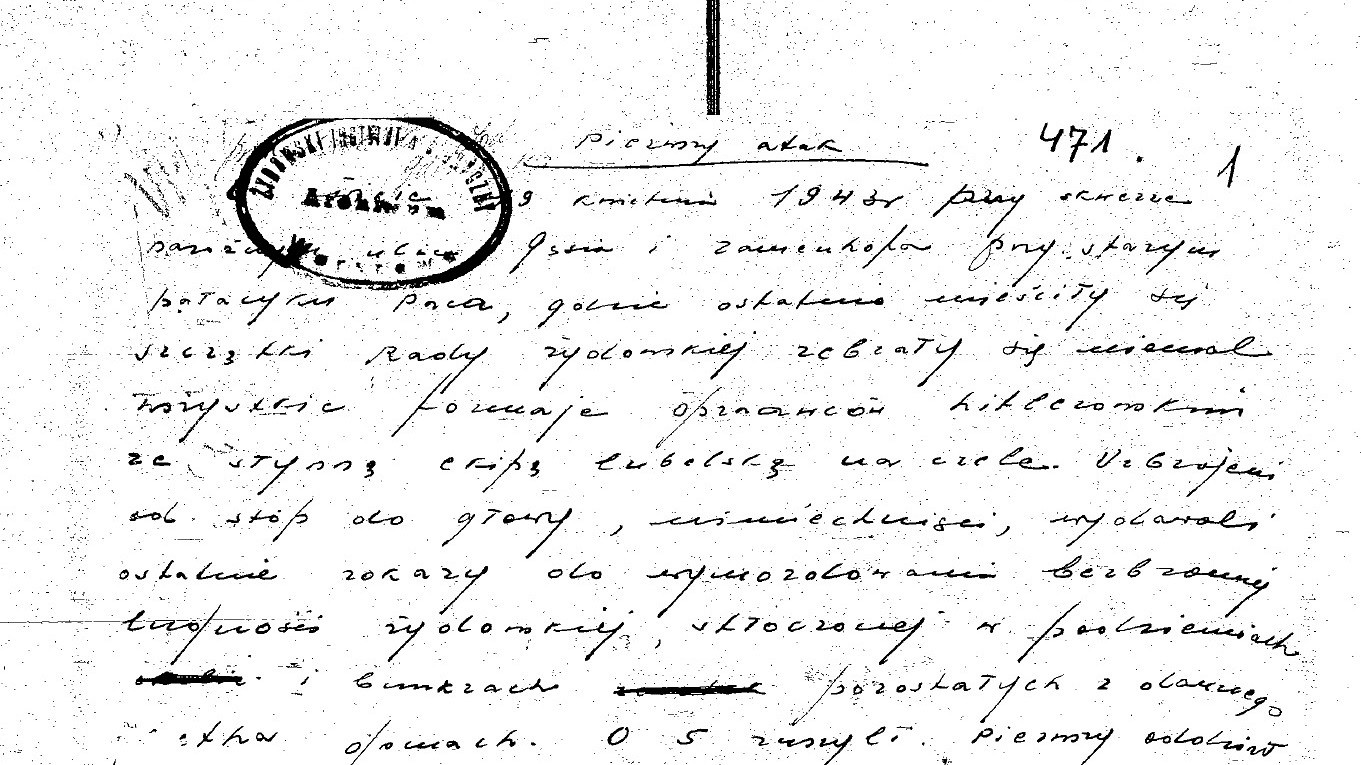 Pierwszy atak
471.
1
9 kwietnia 1943r przy skwerze
ulicy Gęsia i Zamenhofa przy starym
pałacyku Paca, gdzie ostatnio mieściły się
szczątki Rady żydowskiej zebrały się niemal
wszystkie formacje oprawców hitlerowskich
ze słynną ekipą lubelską na czele. Uzbrojeni
od stóp do głowy, uśmiechnięci, wydawali
ostatnie rozkazy do wymordowania bezbronnej
ludności żydowskiej, stłoczonej w podziemiach
i bunkrach pozostałych z dawnego
domach. O 5 ruszyli. Pierwszy oddział
ŻYDOWSKI INSTYTUT HISTORYCZNY
Archiwum